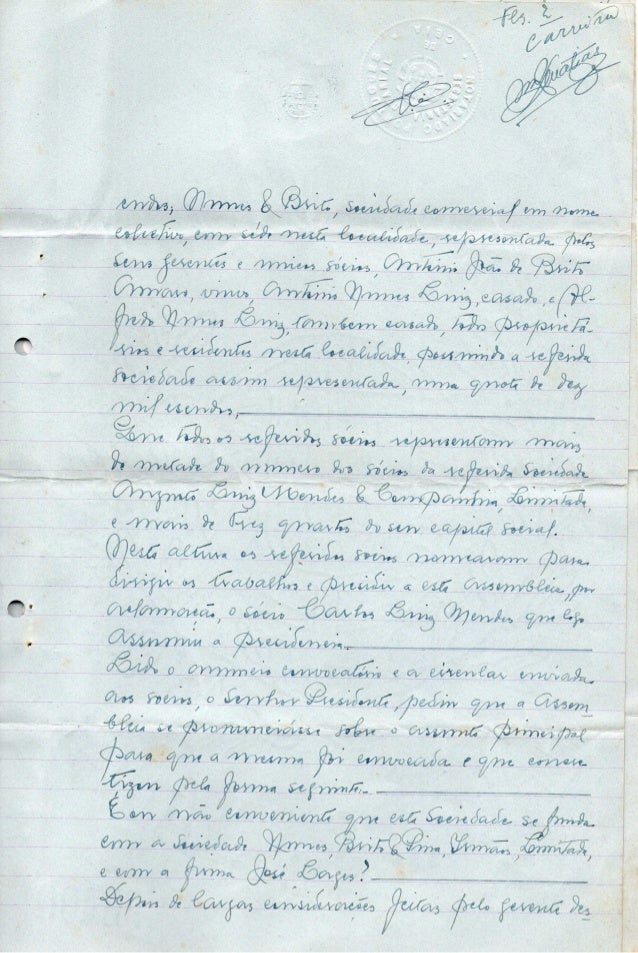 Fls. 2
Carreira
cudos; Nunes & Brito, sociedade comercial em nome
colectivo, com séde nesta localidade, representada pelos
seus gerentes e unicos sócios, António João de Brito
Amaro, viuvo, António Nunes Luiz, casado, e Al-
fredo Nunes Luiz, tambem casado, todos proprietá-
rios e residentes nesta localidade, possuindo a referida
sociedade assim representada, uma quota de dez
mil escudos,
Que todos os referidos sócios representam mais
de metade do numero dos sócios da referida Sociedade
Augusto Luiz Mendes & Companhia, Limitada,
e mais de trez quartos do seu capital social.
Nesta altura os referidos sócios nomearam para
dirigir os trabalhos e presidir a esta Assembleia, por
aclamação, o sócio Carlos Luiz Mendes que logo
assumiu a presidencia.
Lido o anuncio convocatório e a circular enviada
aos sócios, o Senhor Presidente, pediu que a Assem
bleia se pronunciásse sobre o assunto principal
para que a mesma foi convocada e que concre-
tizou pela forma seguinte:
É ou não conveniente que esta Sociedade se funda
com a Sociedade Nunes, Brito & Pina, Irmãos, Limitada,
e com a firma José Borges?
Depois de largas considerações feitas pelo gerente des